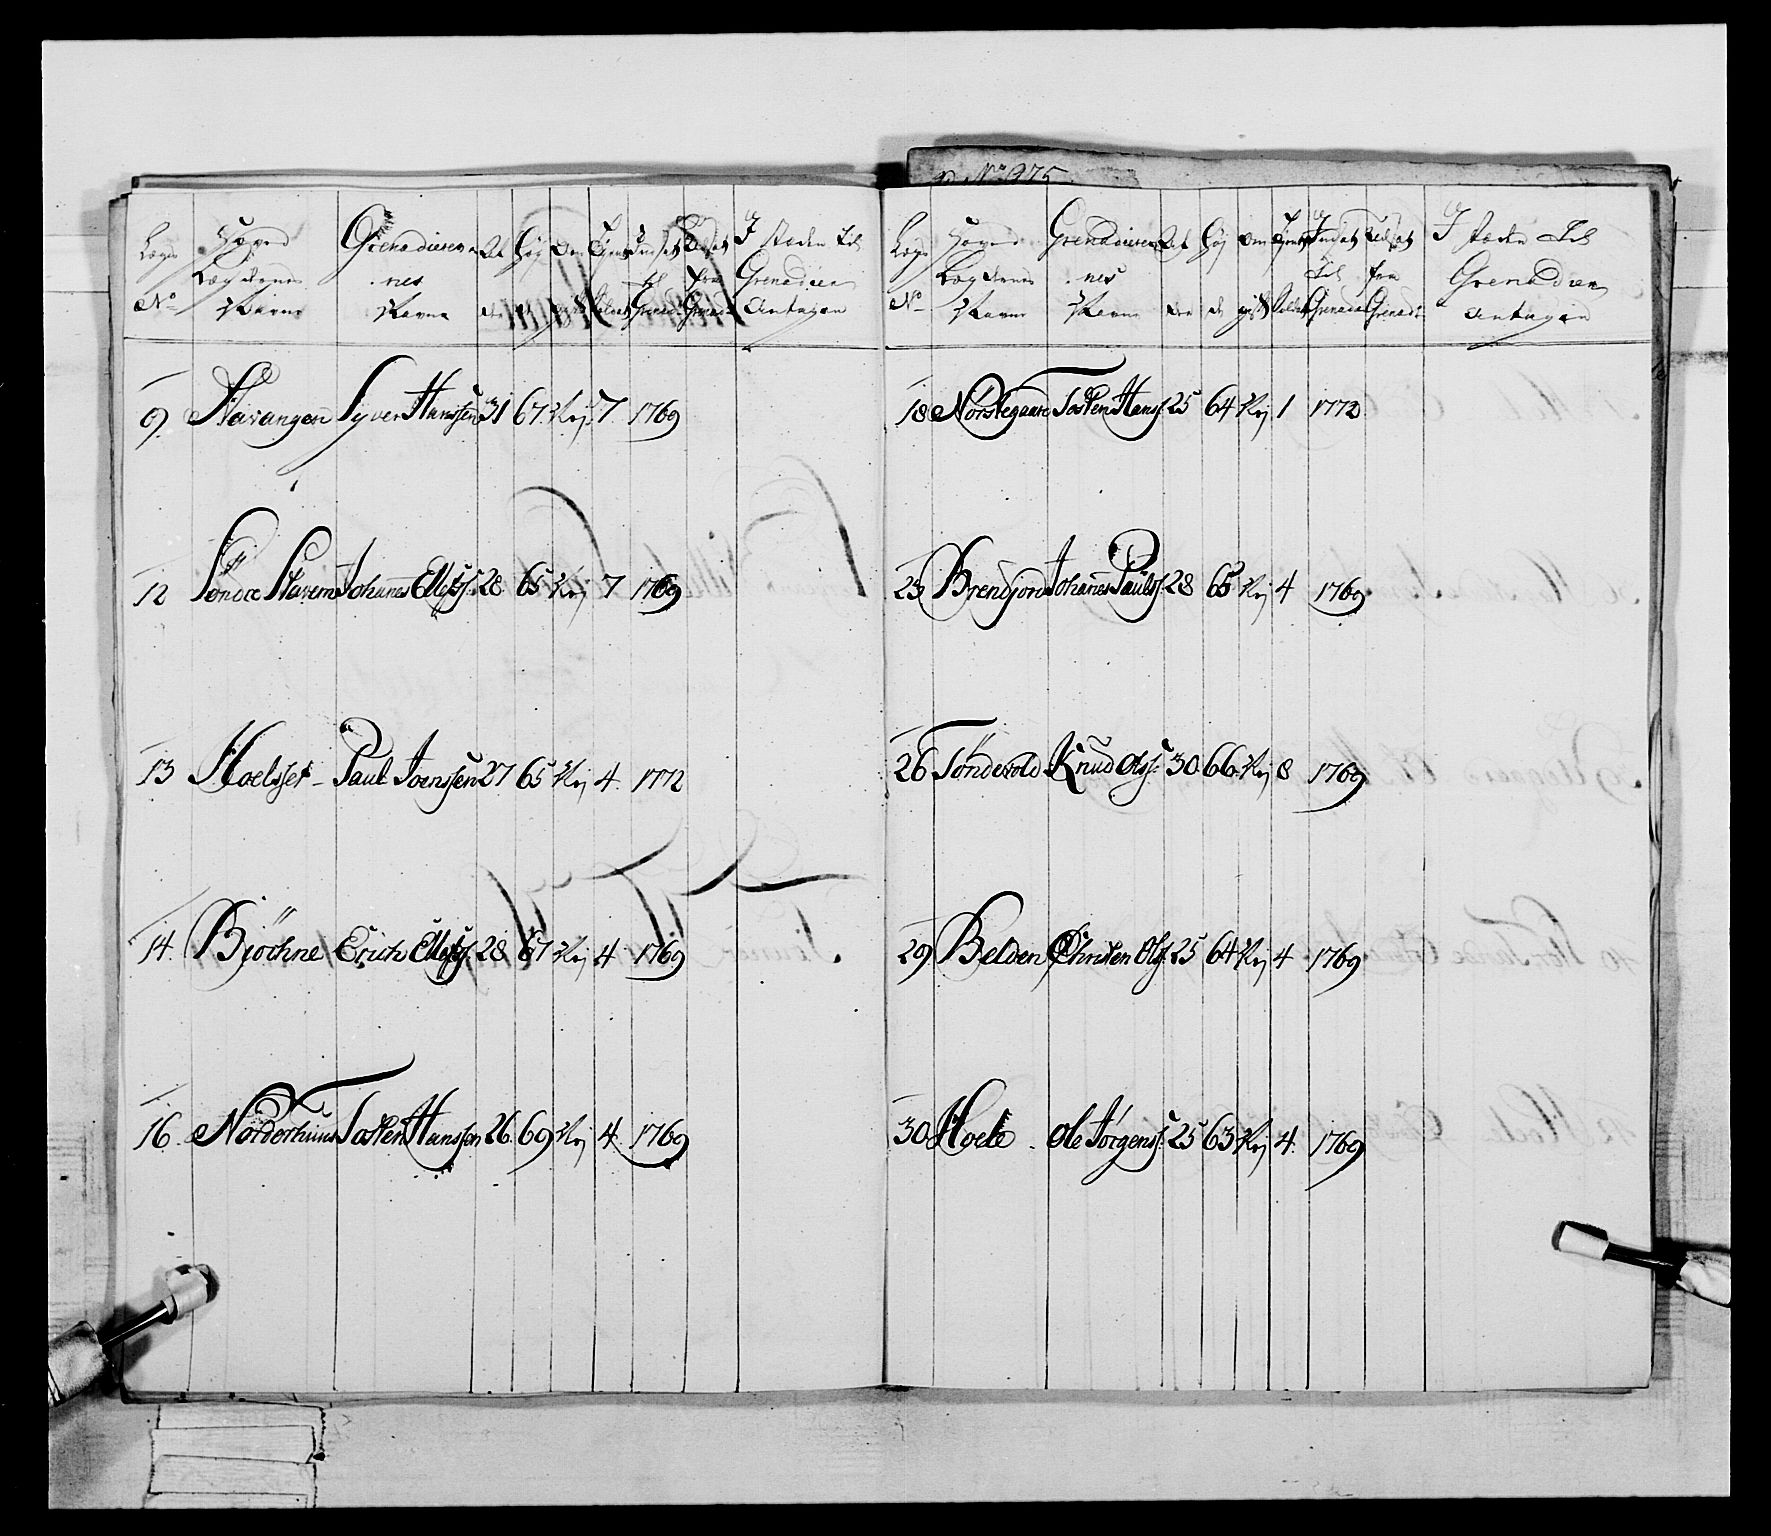 No 975
Lægs No
Hoved Lægdernes Navne
Grenadierernes Navne
I steden til Grenadeer antagen
9 Stavangen Syver Hanssen 31 67 Nej 7 1769
12 Söndre Stavem Johannes Ellefs: 28 65 Nej 7 1769
13 Hoelsset Paul Joenssen 27 65 Nej 4 1772
14. Bjöchne Erich Ellefs: 28 67 Nej 4 1769
16 Norderhuus Tosten Hanssen 26 69 Nej 4 1769
Lægs No
Hoved Lægdernes Navne
Grenadierernes Navne
I steden til Grenadeer antagen
18 Nörstegaard Tosten Hans: 25 64 Nej 1 1772
23 Brendjord Johanes Pauls: 28 65 Nej 4 1769
26 Töndevold Knud Ols: 30 66 Nej 8 1769
29 Belden Christen Ols: 25 64 Nej 4 1769
30 Hoele Ole Jörgens: 25 63 Nej 4 1769